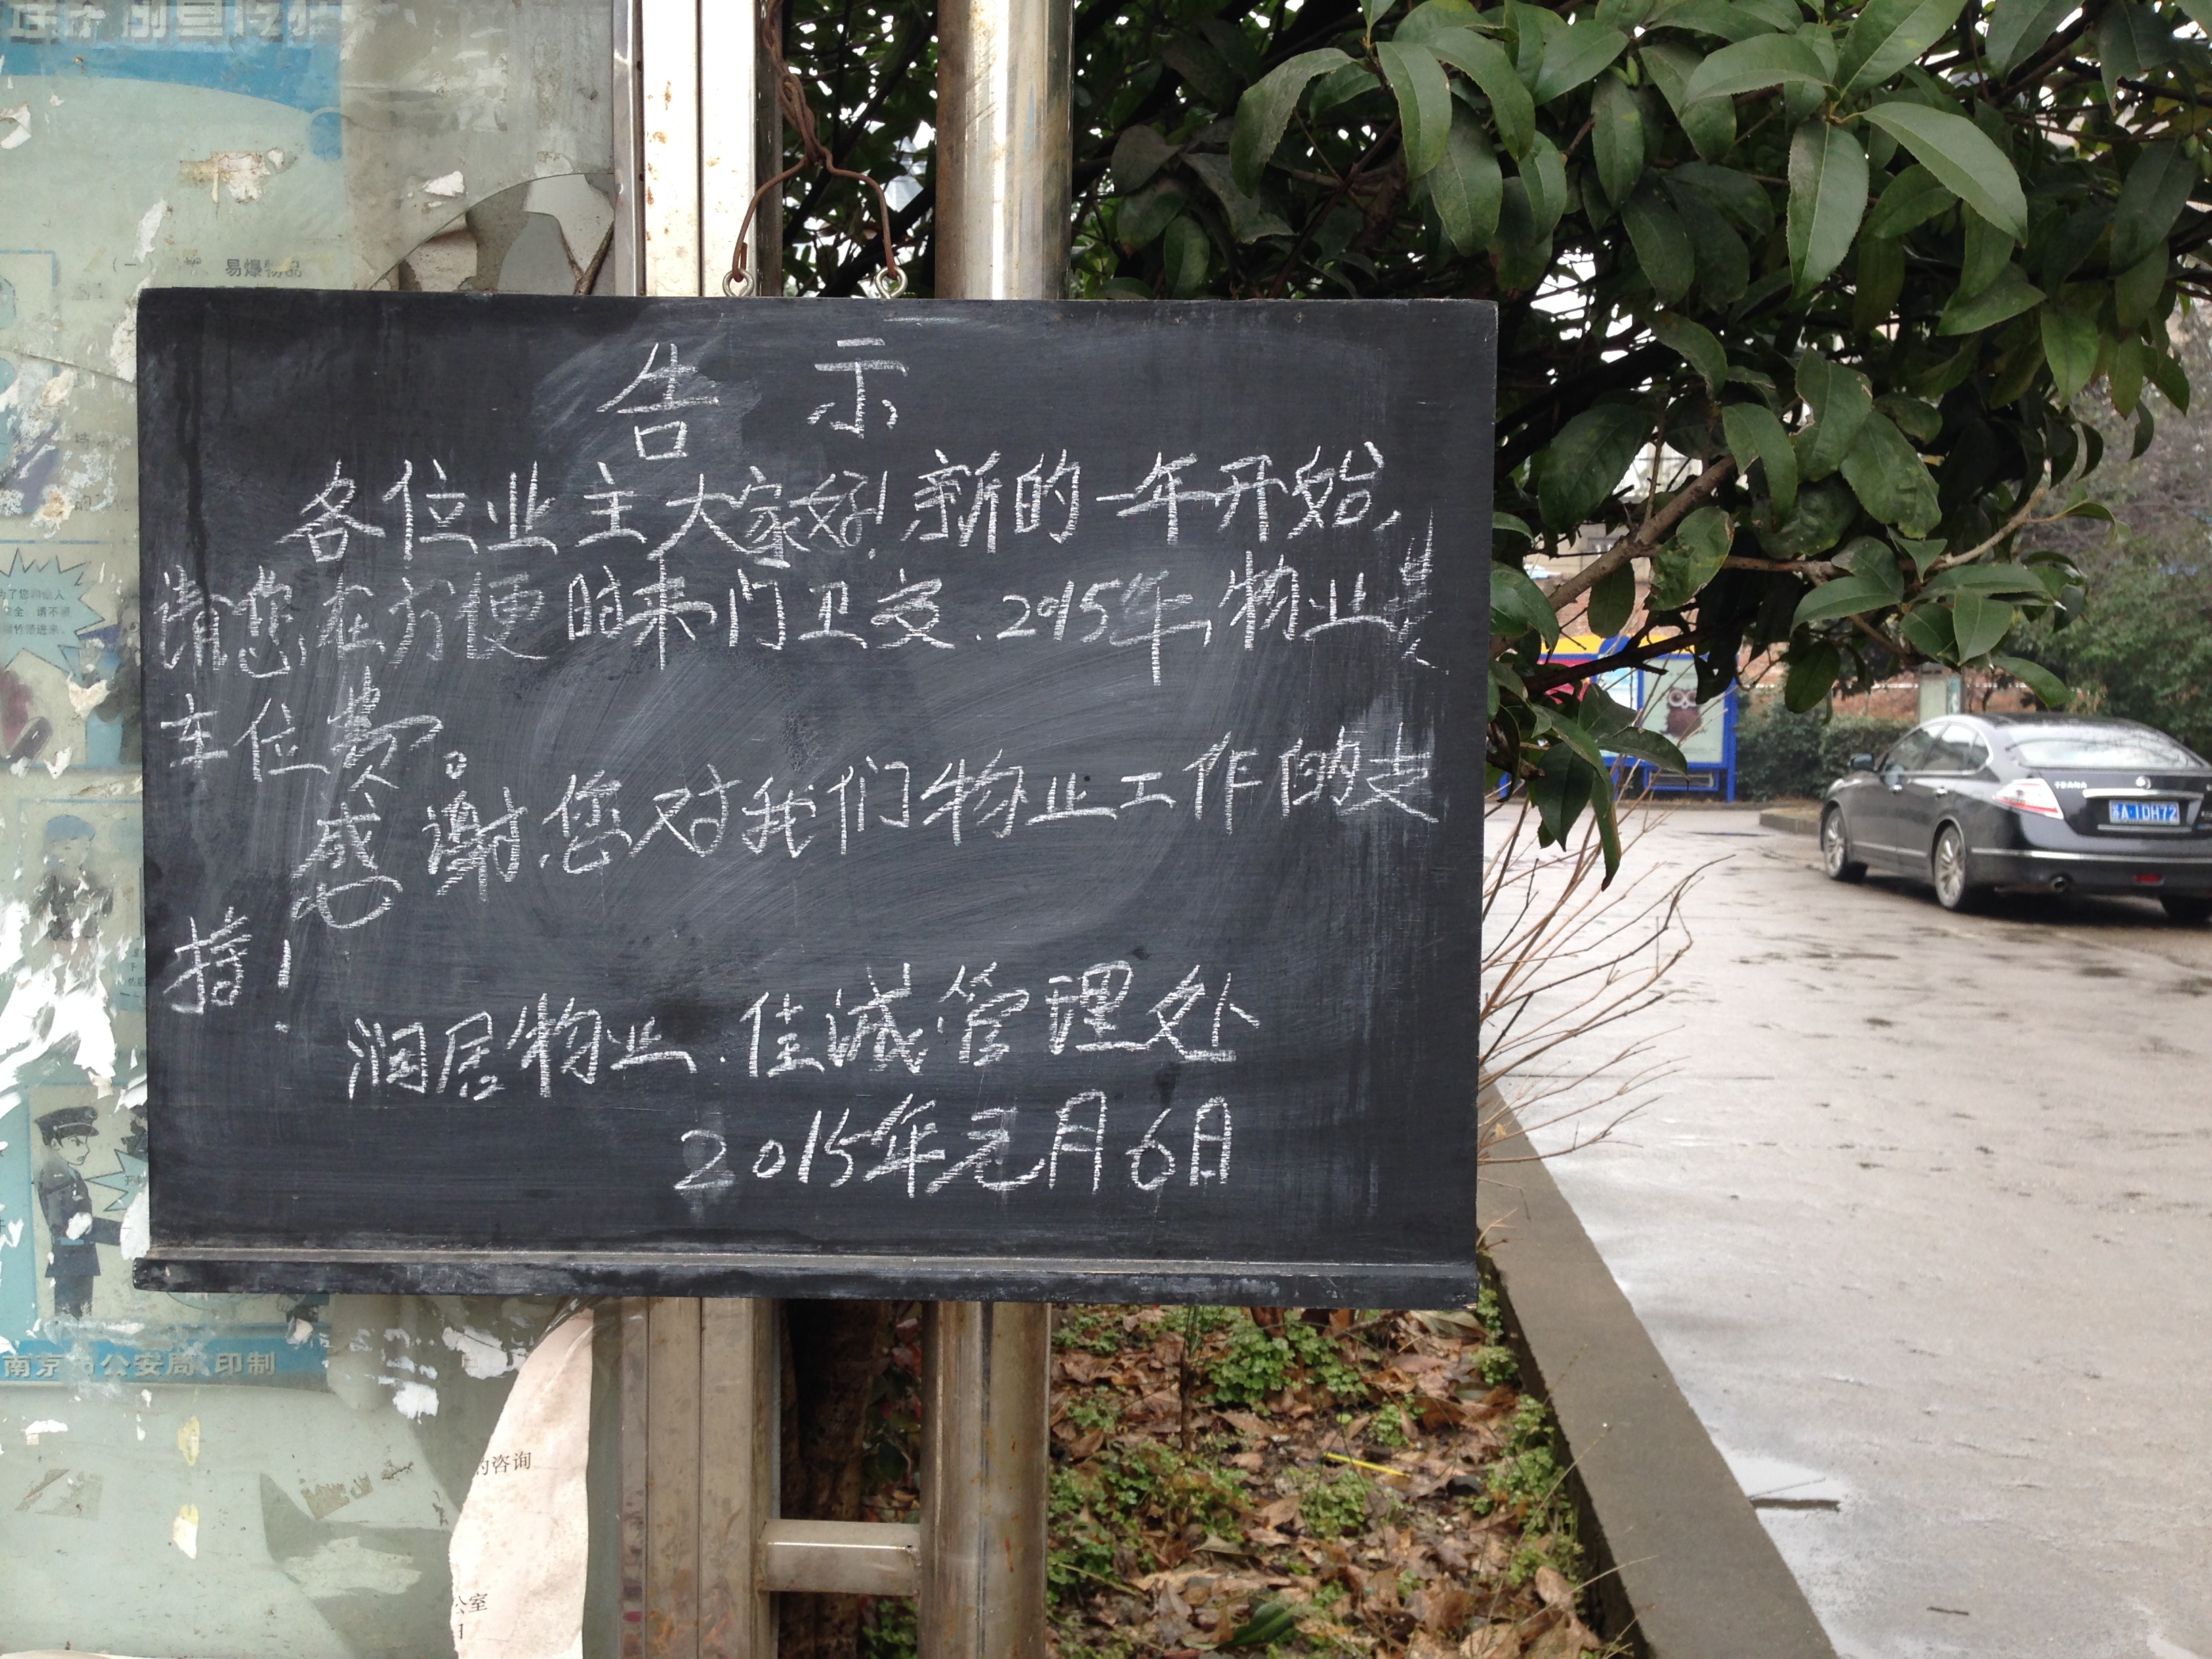 易爆物品
告 示
各位业主大家好!新的一年开始,
请您在方便时来门卫交.2015年,物业费
车位费。
感谢您对我们物业工作的支
持!
润居物业.佳诚管理处
2015年元月6日
TEANA
苏A·1DH72
南京 公安局 印制
的咨询
公室